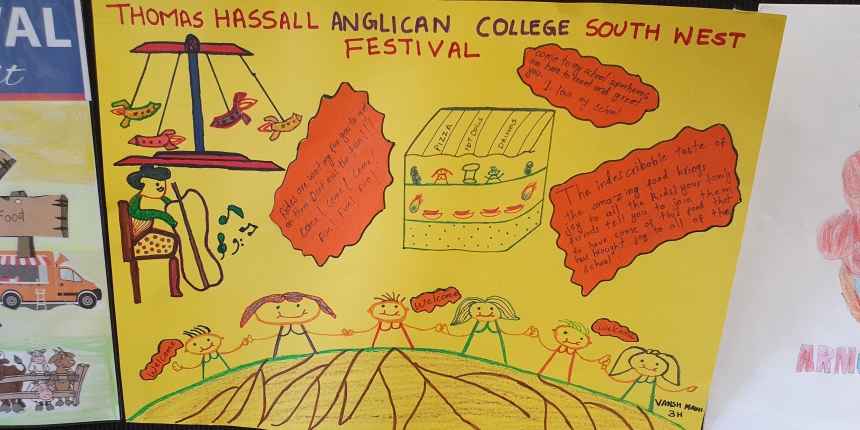 THOMAS HASSALL ANGLICAN COLLEGE SOUTH WEST
FESTIVAL
VAL
it
Food
come to my school superheros
are here to meet and greet
you.
I love my school
PIZZA
HOT DOGS
DRINKS
Rides are waiting for you to get
on them Dont miss the fun!!!
Come! Come! Come!
Fun! Fun! Fun!
The indescribable taste of
the amazing food brings
joy to all the Kids! your family
friends tell you to join them
to have some of this food that
has brought joy to all of the
school!
Welcome
Welcome
Welcome
VANSH MAINI
3H
ARN